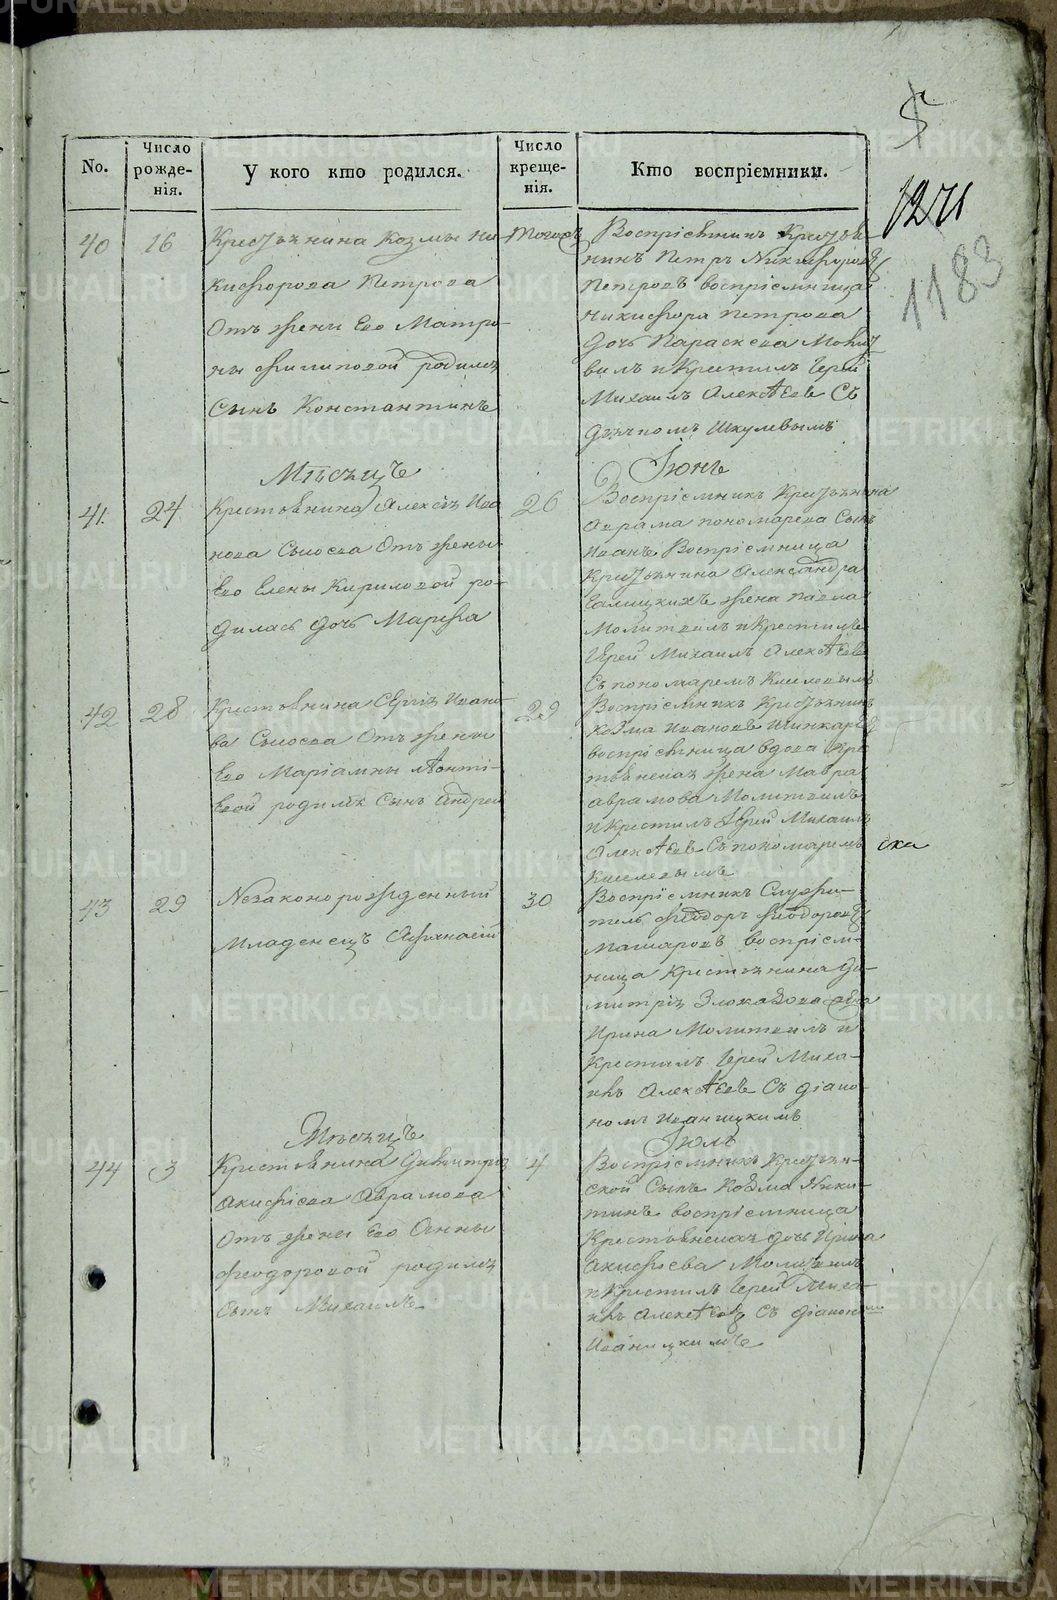 No.
Число рожде-нія.
У кого кто родился.
Число креще-нія.
Кто воспріемники.
1183
40
16
Крестьянина Козмы Ни-
кифорова Петрова
Отъ жены Его Матро-
ны Филиповой родился
Сынъ Константинъ
Тогожъ
Воспріемникъ Крестья-
нинъ Петръ Никифоровъ
Петровъ воспріемница
Никифора Петрова
дочь Параскева Молит
вилъ и Крестилъ Іерей
Михаилъ Алексѣевъ Съ
Дьячкомъ Шкулевымъ
Мѣсяцъ
Іюнь
41
24
Крестьянина Алексія Ива
нова Сысоева Отъ жены
Его Елены Кириловой ро-
дилась дочь Марфа
26
Воспріемникъ Крестьянина
Аврама Пономарева Сынъ
Иванъ Воспріемница
Крестьянина Александра
жена Павла
Молитвилъ и Крестилъ
Іерей Михаилъ Алексѣевъ
Съ пономаремъ Киселевымъ
42
28
Крестьянина Сергія Ивано-
ва Сысоева Отъ жены
Его Маріамны Леонті-
евой родился Сынъ Андрей
29
Воспріемникъ Крестьянинъ
Козма Ивановъ Шинкаревъ
воспріемница вдова Крес
тьянская жена Мавра
Аврамова Молитвилъ
и Крестилъ Іерей Михаилъ
Алексѣевъ Съ пономаремъ
Киселевымъ
43
29
Незаконорожденный
Младенецъ Афанасій
30
Воспріемникъ Служи-
тель Феодоръ Феодоровъ
Машаровъ воспріем-
ница Крестьянина Ди-
митрія Злоказова
Ирина Молитвилъ и
Крестилъ Іерей Миха-
илъ Алексѣевъ Съ діако-
номъ Иваницкимъ
Мѣсяцъ
Іюль
44
3
Крестьянина Димитрія
Акифіева Аврамова
Отъ жены Его Анны
Феодоровой родился
Сынъ Михаилъ
4
Воспріемникъ Крестьян-
ской Сынъ Козма Ники-
тинъ воспріемница
Крестьянская дочь Ирина
Акифіева Молитвилъ
и Крестилъ Іерей Миха-
илъ Алексѣевъ Съ діакономъ
Иваницкимъ